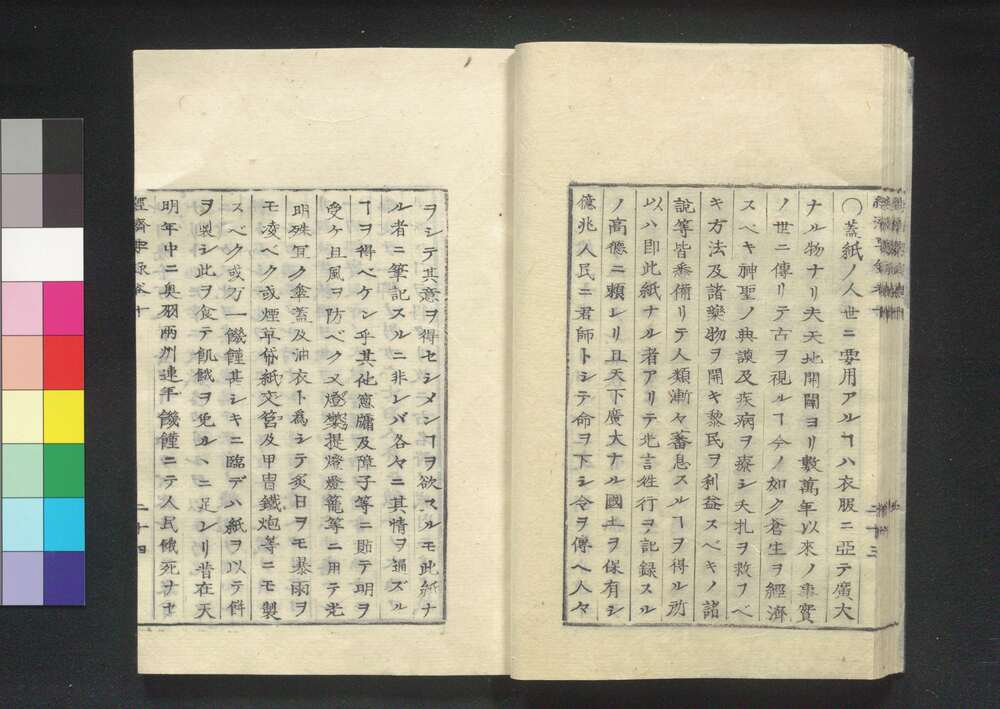 〇蓋紙ノ人世ニ要用アルヿハ衣服ニ亞テ廣大
ナル物ナリ夫天地開闢ヨリ數萬年以來ノ事實
ノ世ニ傳リテ古ヲ視ルヿ今ノ如ク蒼生ヲ經濟
スベキ神聖ノ典謨及疾病ヲ療シ夭札ヲ救フベ
キ方法及諸藥物ヲ開キ黎民ヲ利益スベキノ諸
說等皆悉備リテ人類漸々蕃息スルヿヲ得ル所
以ハ即此紙ナル者アリテ先言徃行ヲ記録スル
ノ高德ニ頼レリ且天下廣大ナル國土ヲ保有シ
億兆人民ニ君師トシテ命ヲ下シ令ヲ傳ヘ人々
二十三
ヲシテ其意ヲ得セシメンヿヲ欲スルモ此紙ナ
ル者ニ筆記スルニ非レバ各々ニ其情ヲ通ズル
ヿヲ得ベケン乎其他窻牖及障子等ニ貼テ明ヲ
受ケ且風ヲ防ベク又燈檠提燈燈籠等ニ用テ光
明殊ニ冝ク傘蓋及油衣ト為シテ炙日ヲモ暴雨ヲ
モ凌ベク或煙草帒紙文筥及甲冑鐵炮等ニモ製
スベク或万一饑饉甚シキニ臨デハ紙ヲ以テ餅
ヲ製シ此ヲ食テ飢餓ヲ免ルヽニ足レリ昔在天
明年中ニ奥羽兩州連年饑饉ニテ人民餓死ナセ
經濟要录卷十
二十四